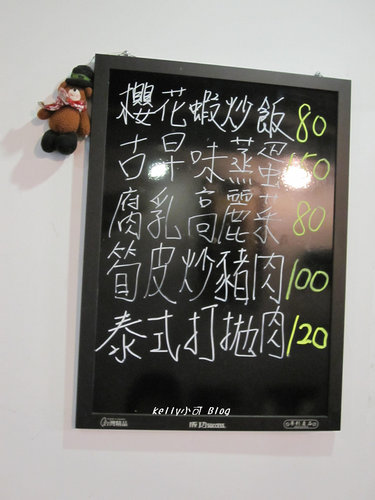 櫻花蝦炒飯 80
古早味蒸蛋 150
腐乳高麗菜 80
筍皮炒豬肉 100
泰式打拋肉 120
kelly小可 Blog
台灣精品 成功 SUCCESS